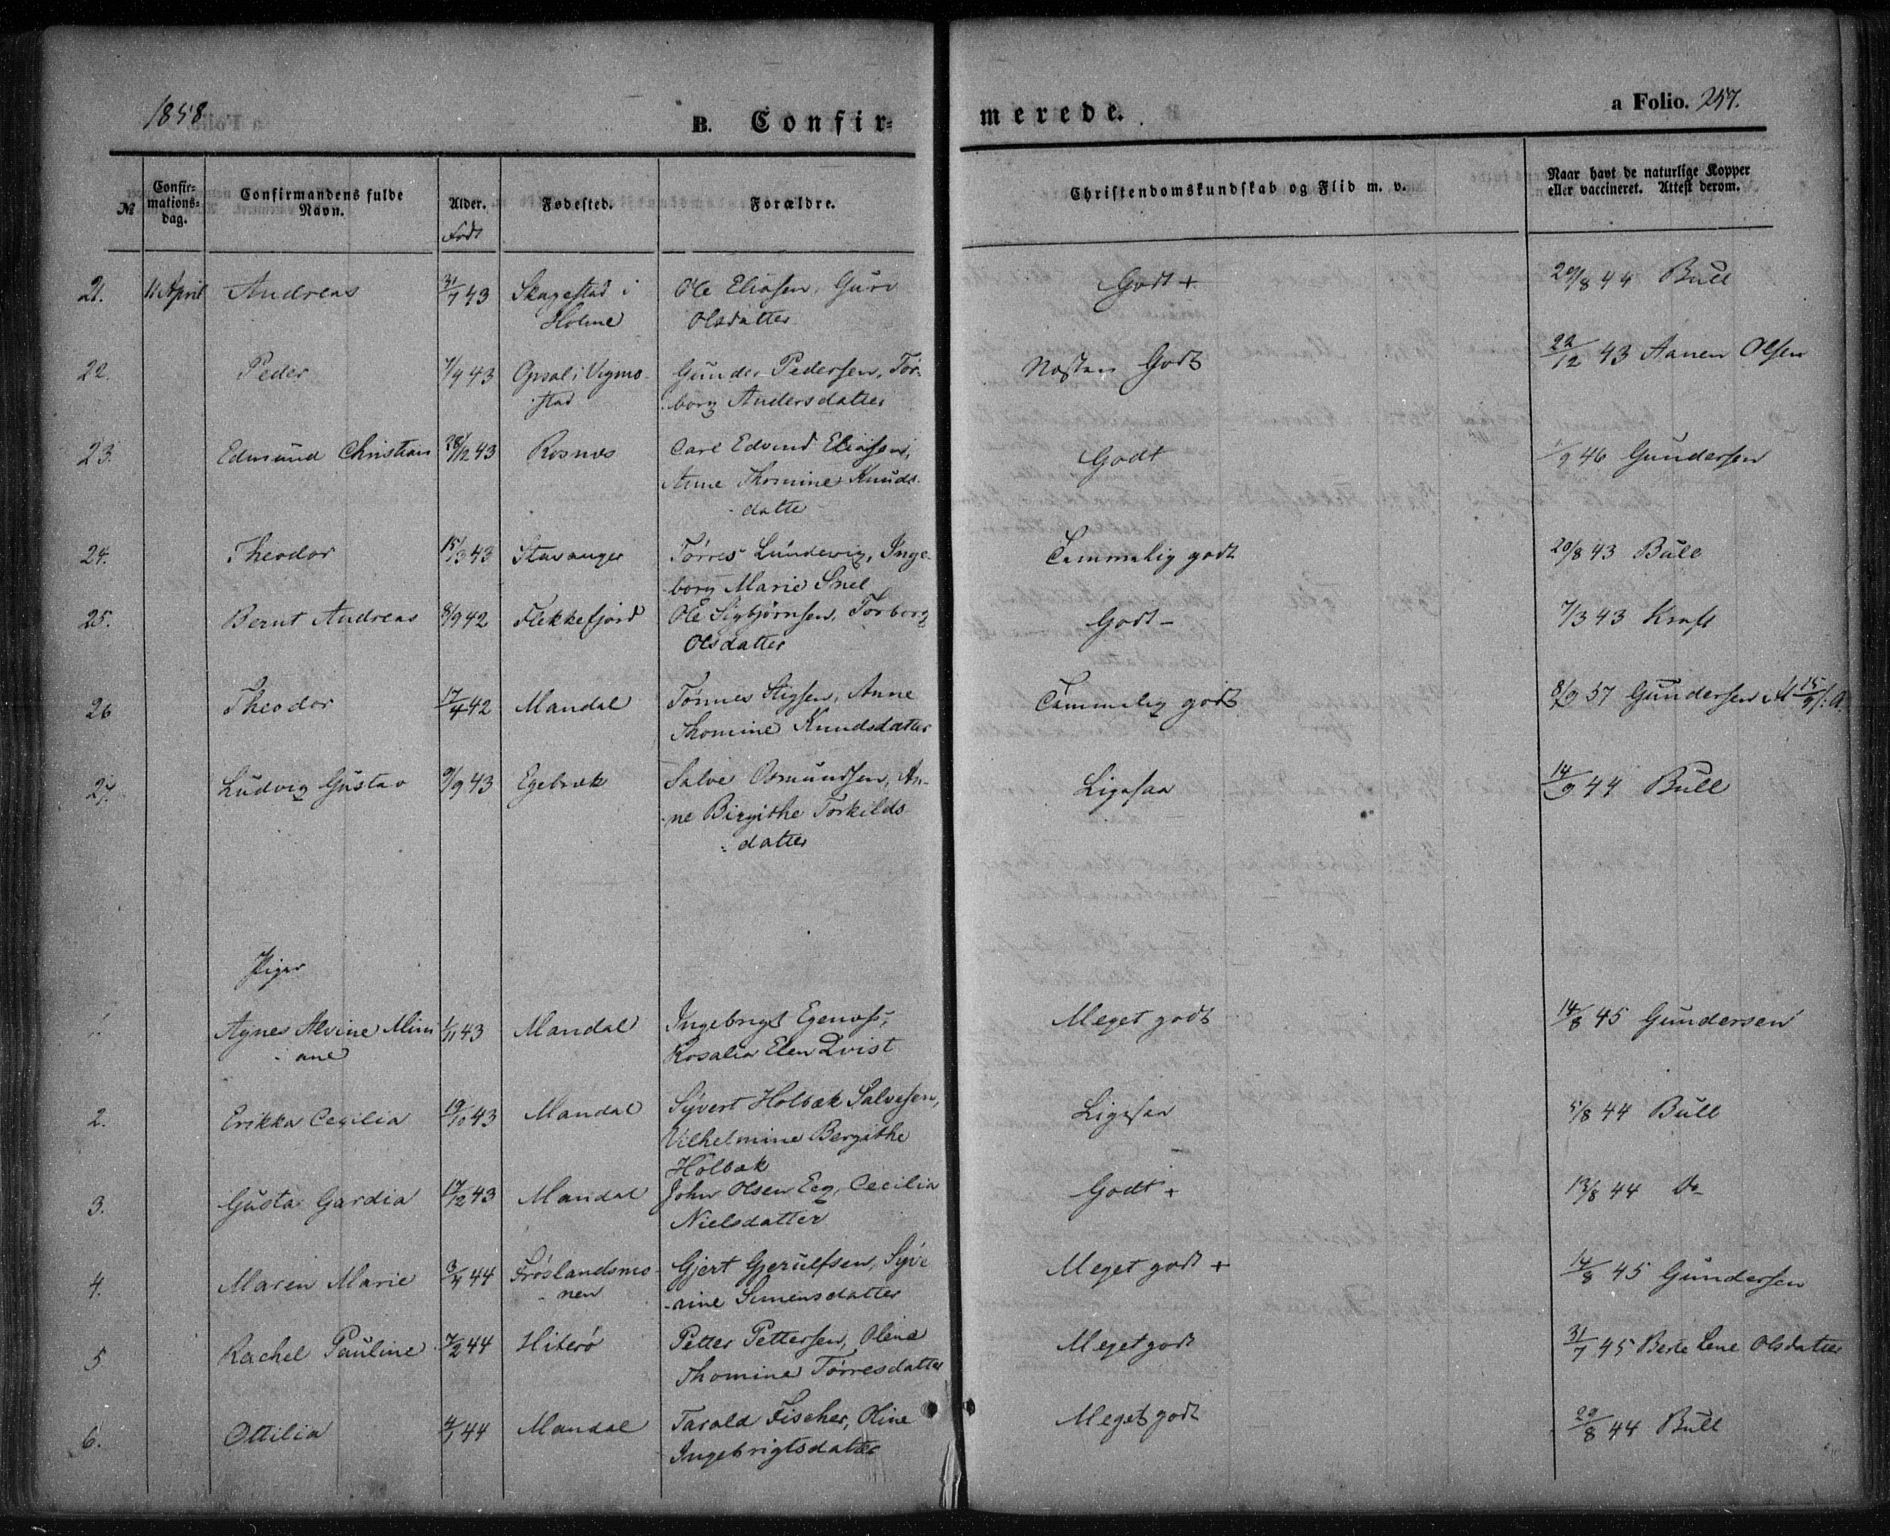 1858
B. Confir=
merede.
a Folio. 257.
№ Confir=mations=dag. Confirmandens fulde Navn. Alder. Fødested. Forældre. Christendomskundskab og Flid m. v. Naar havt de naturlige Kopper eller vaccineret. Attest derom.
Født
21. 11 April Andreas 31/7 43 Skagestad i Ole Eliasen, Guri Godt + 29/8 44 Bull
Holme Olsdatter
22. Peder 7/9 43 Opsal i Vigmo- Gunder Pedersen, Tor- Næsten Godt 22/12 43 Aanen Olsen
stad borg Andersdatter
23. Edmund Christian 28/12 43 Rosnes Carl Edvind Eliasen, Godt 1/9 46 Gundersen
Anne Thomine Knuds-
datter
24. Theodor 15/3 43 Stavanger Tørres Lundevig, Inge- Temmelig godt 20/8 43 Bull
borg Marie Snel
25. Bernt Andreas 8/9 42 Flekkefjord Ole Sigbjørnsen, Torborg Godt - 7/3 43 Kraft
Olsdatter
26 Theodor 17/4 42 Mandal Tønnes Stigsen, Anne Temmelig godt 8/9 57 Gundersen
Thomine Knudsdatter
27. Ludvig Gustav 9/9 43 Egebræk Salve Osmundsen, An- Ligesaa 14/9 44 Bull
ne Birgithe Torkilds-
datter
Piger
1. Agnes Alvine Mim 1/11 43 Mandal Ingebrigt Egenæs, Meget godt 14/8 45 Gundersen
ane Rosalia Elen Qvist
2. Erikka Cecilia 19/10 43 Mandal Syvert Holbæk Salvesen, Ligesaa 5/8 44 Bull
Vilhelmine Bergithe
Holbæk
3. Gusta Gardia 17/12 43 Mandal John Olsen Eeg, Cecilia Godt + 13/8 44 Do
Nielsdatter
4. Maren Marie 3/4 44 Frøslandsmo- Gjert Gjerulfsen, Syve- Meget godt + 14/8 45 Gundersen
nen rine Simensdatter
5 Rachel Pauline 7/2 44 Hiterø Petter Pettersen, Oline Meget godt 31/7 45 Berte Lene Olsdatter
Thomine Tørresdatter
6. Ottilia 4/1 44 Mandal Tarald Fischer, Oline Meget godt 29/8 44 Bull
Ingebrigtsdatter